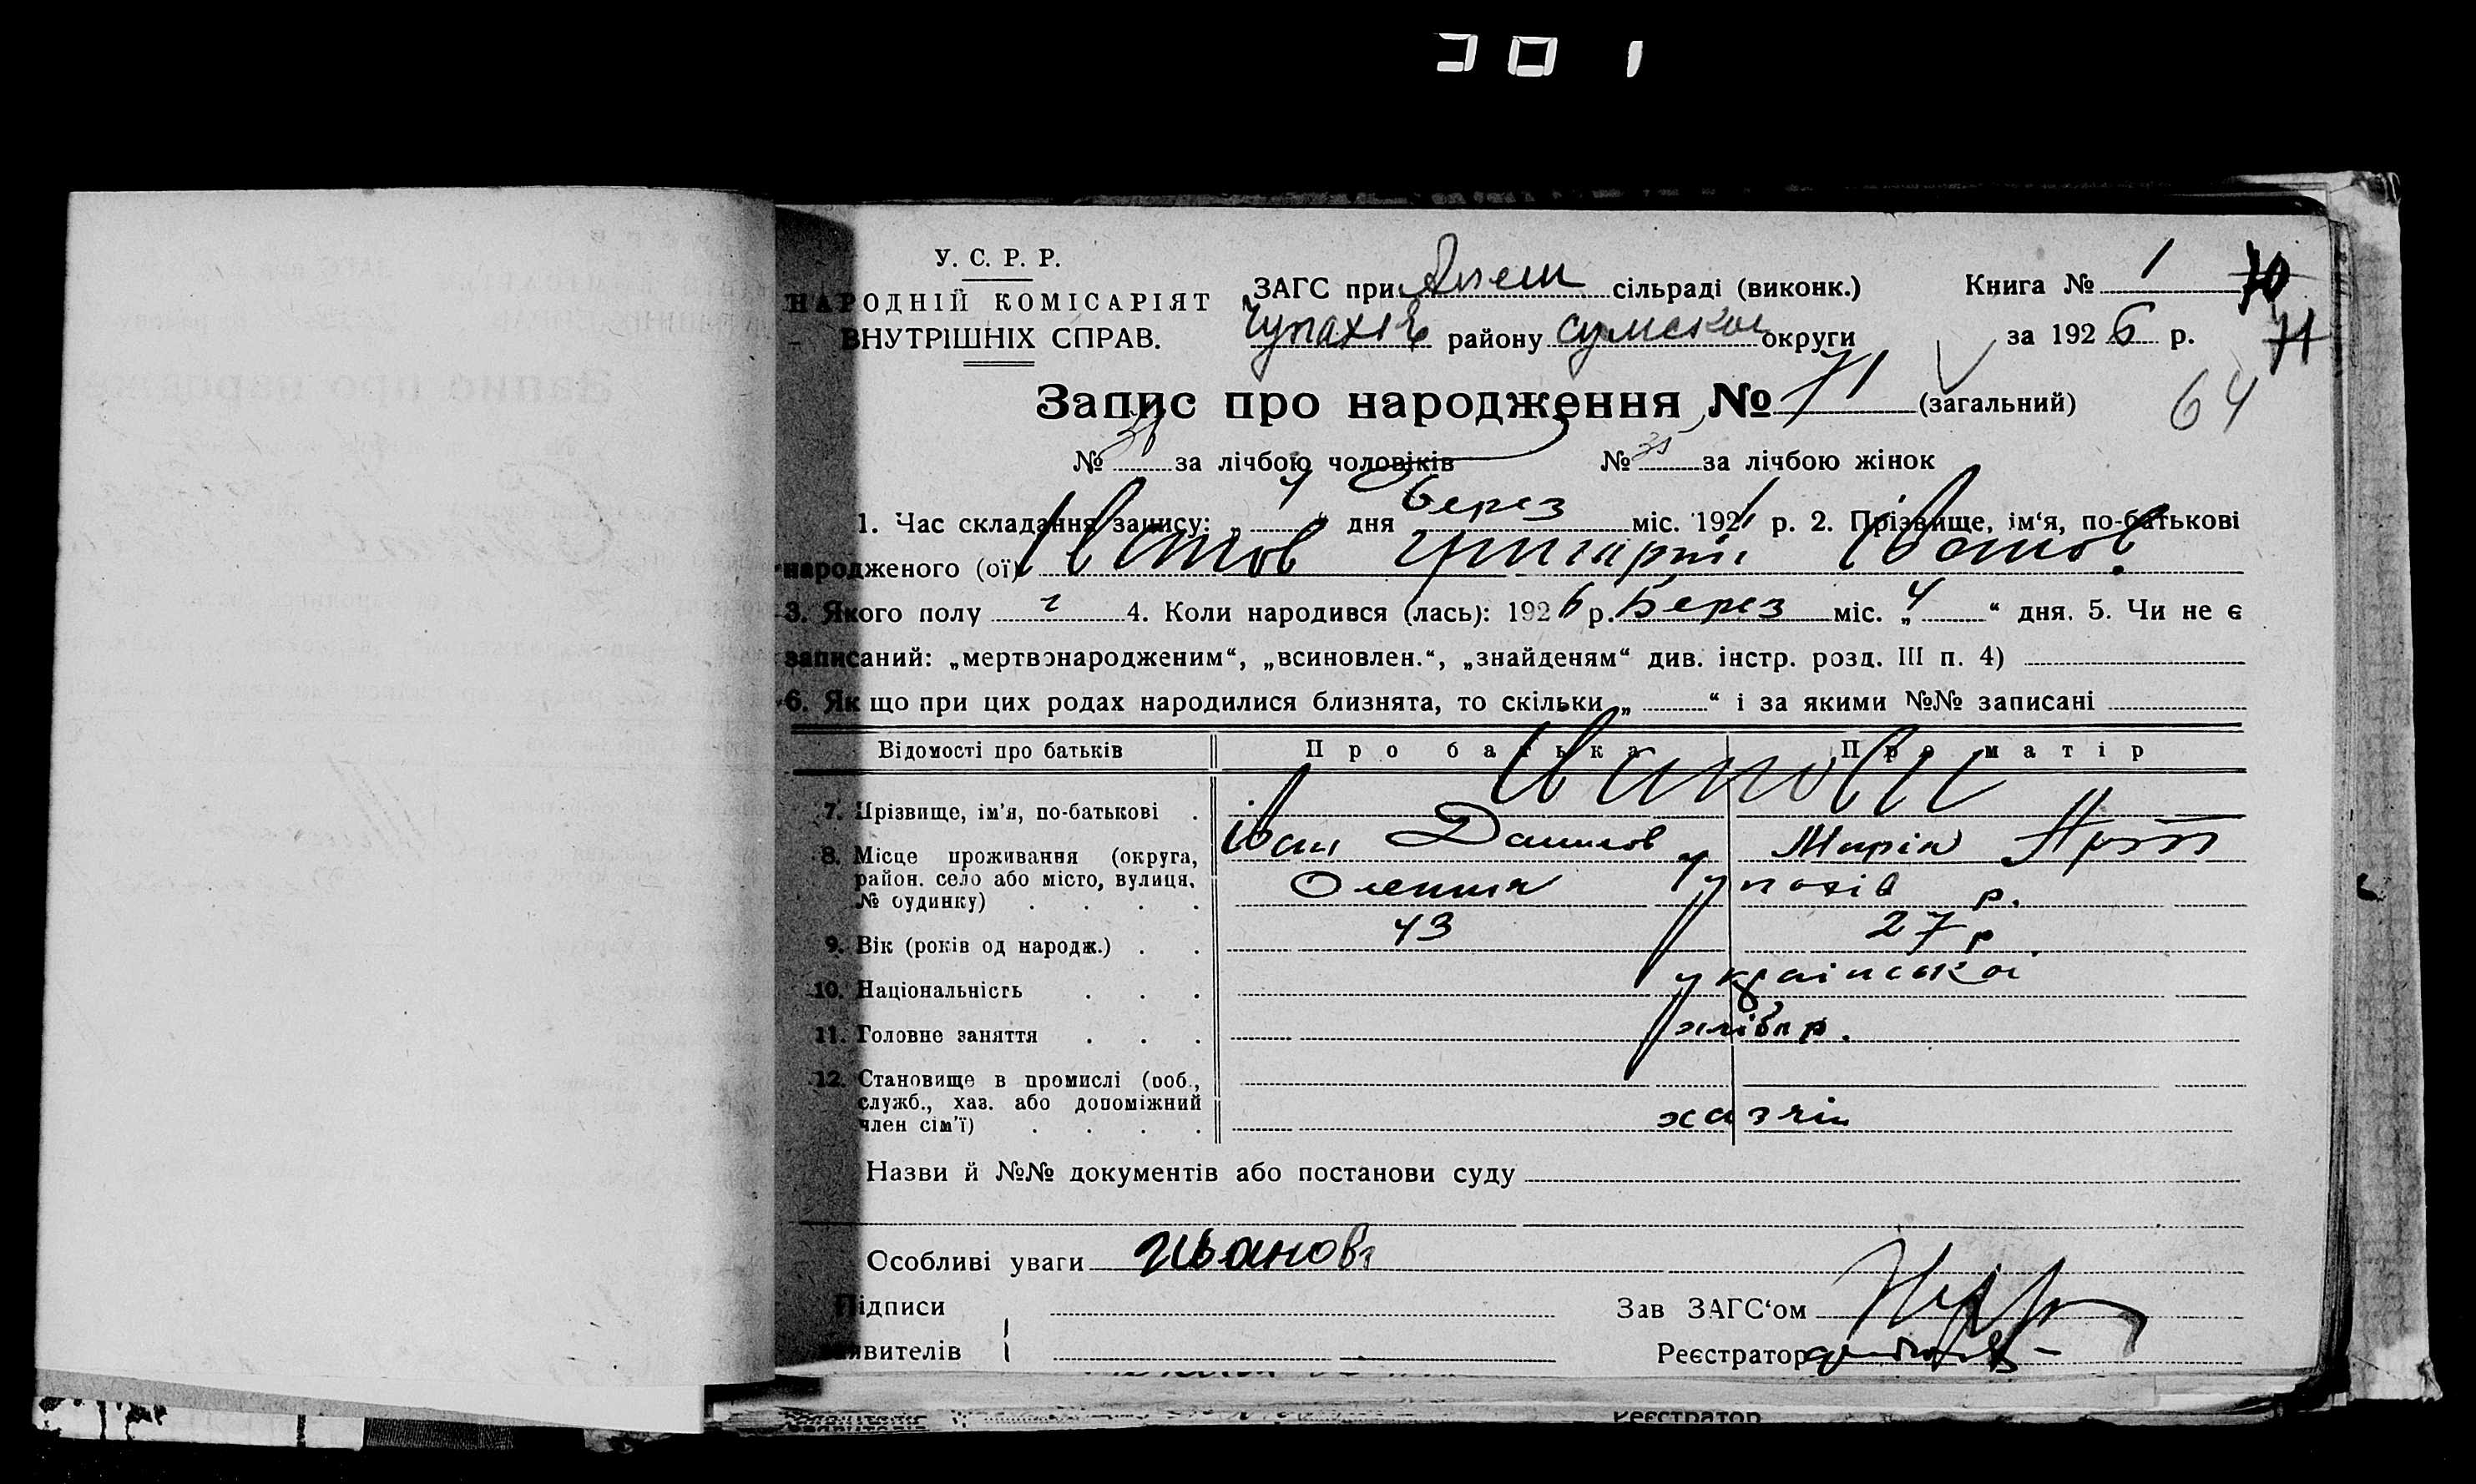 У. С. Р. Р.
НАРОДНІЙ КОМІСАРІЯТ
ВНУТРІШНІХ СПРАВ.
ЗАГС при сільраді (виконк.)
Чупахів району Сумської округи
Книга № 1 70
за 1926 р. 71
64
Запис про народження № 71 (загальний)
№ за лічбою чоловіків № 35 за лічбою жінок
1. Час складання запису: „ “ дня Берез міс. 192 р. 2. Прізвище, ім‘я, по-батькові
народженого (ої) Іванов Григорій Іванов
3. Якого полу ч 4. Коли народився (лась): 1926 р. Берез міс. „4“ дня. 5. Чи не є
записаний: „мертвонародженим“, „всиновлен.“, „знайденям“ див. інстр. розд. III п. 4)
6. Як що при цих родах народилися близнята, то скільки „ “ і за якими №№ записані
Відомості про батьків Про батька Про матір
7. Прізвище, ім'я, по-батькові Іванови
Іван Данилов Марія
8. Місце проживання (округа,
район. село або місто, вулиця,
№ будинку) Олешня Чупахів р.
9. Вік (років од народж.) 43 27 р.
10. Національність українська
11. Головне заняття хлібор.
12. Становище в промислі (роб.,
служб., хаз. або допоміжний
член сім'ї) хазяїн
Назви й №№ документів або постанови суду
Особливі уваги
Підписи Зав ЗАГС‘ом
явителів Реєстратор
Реєстратор